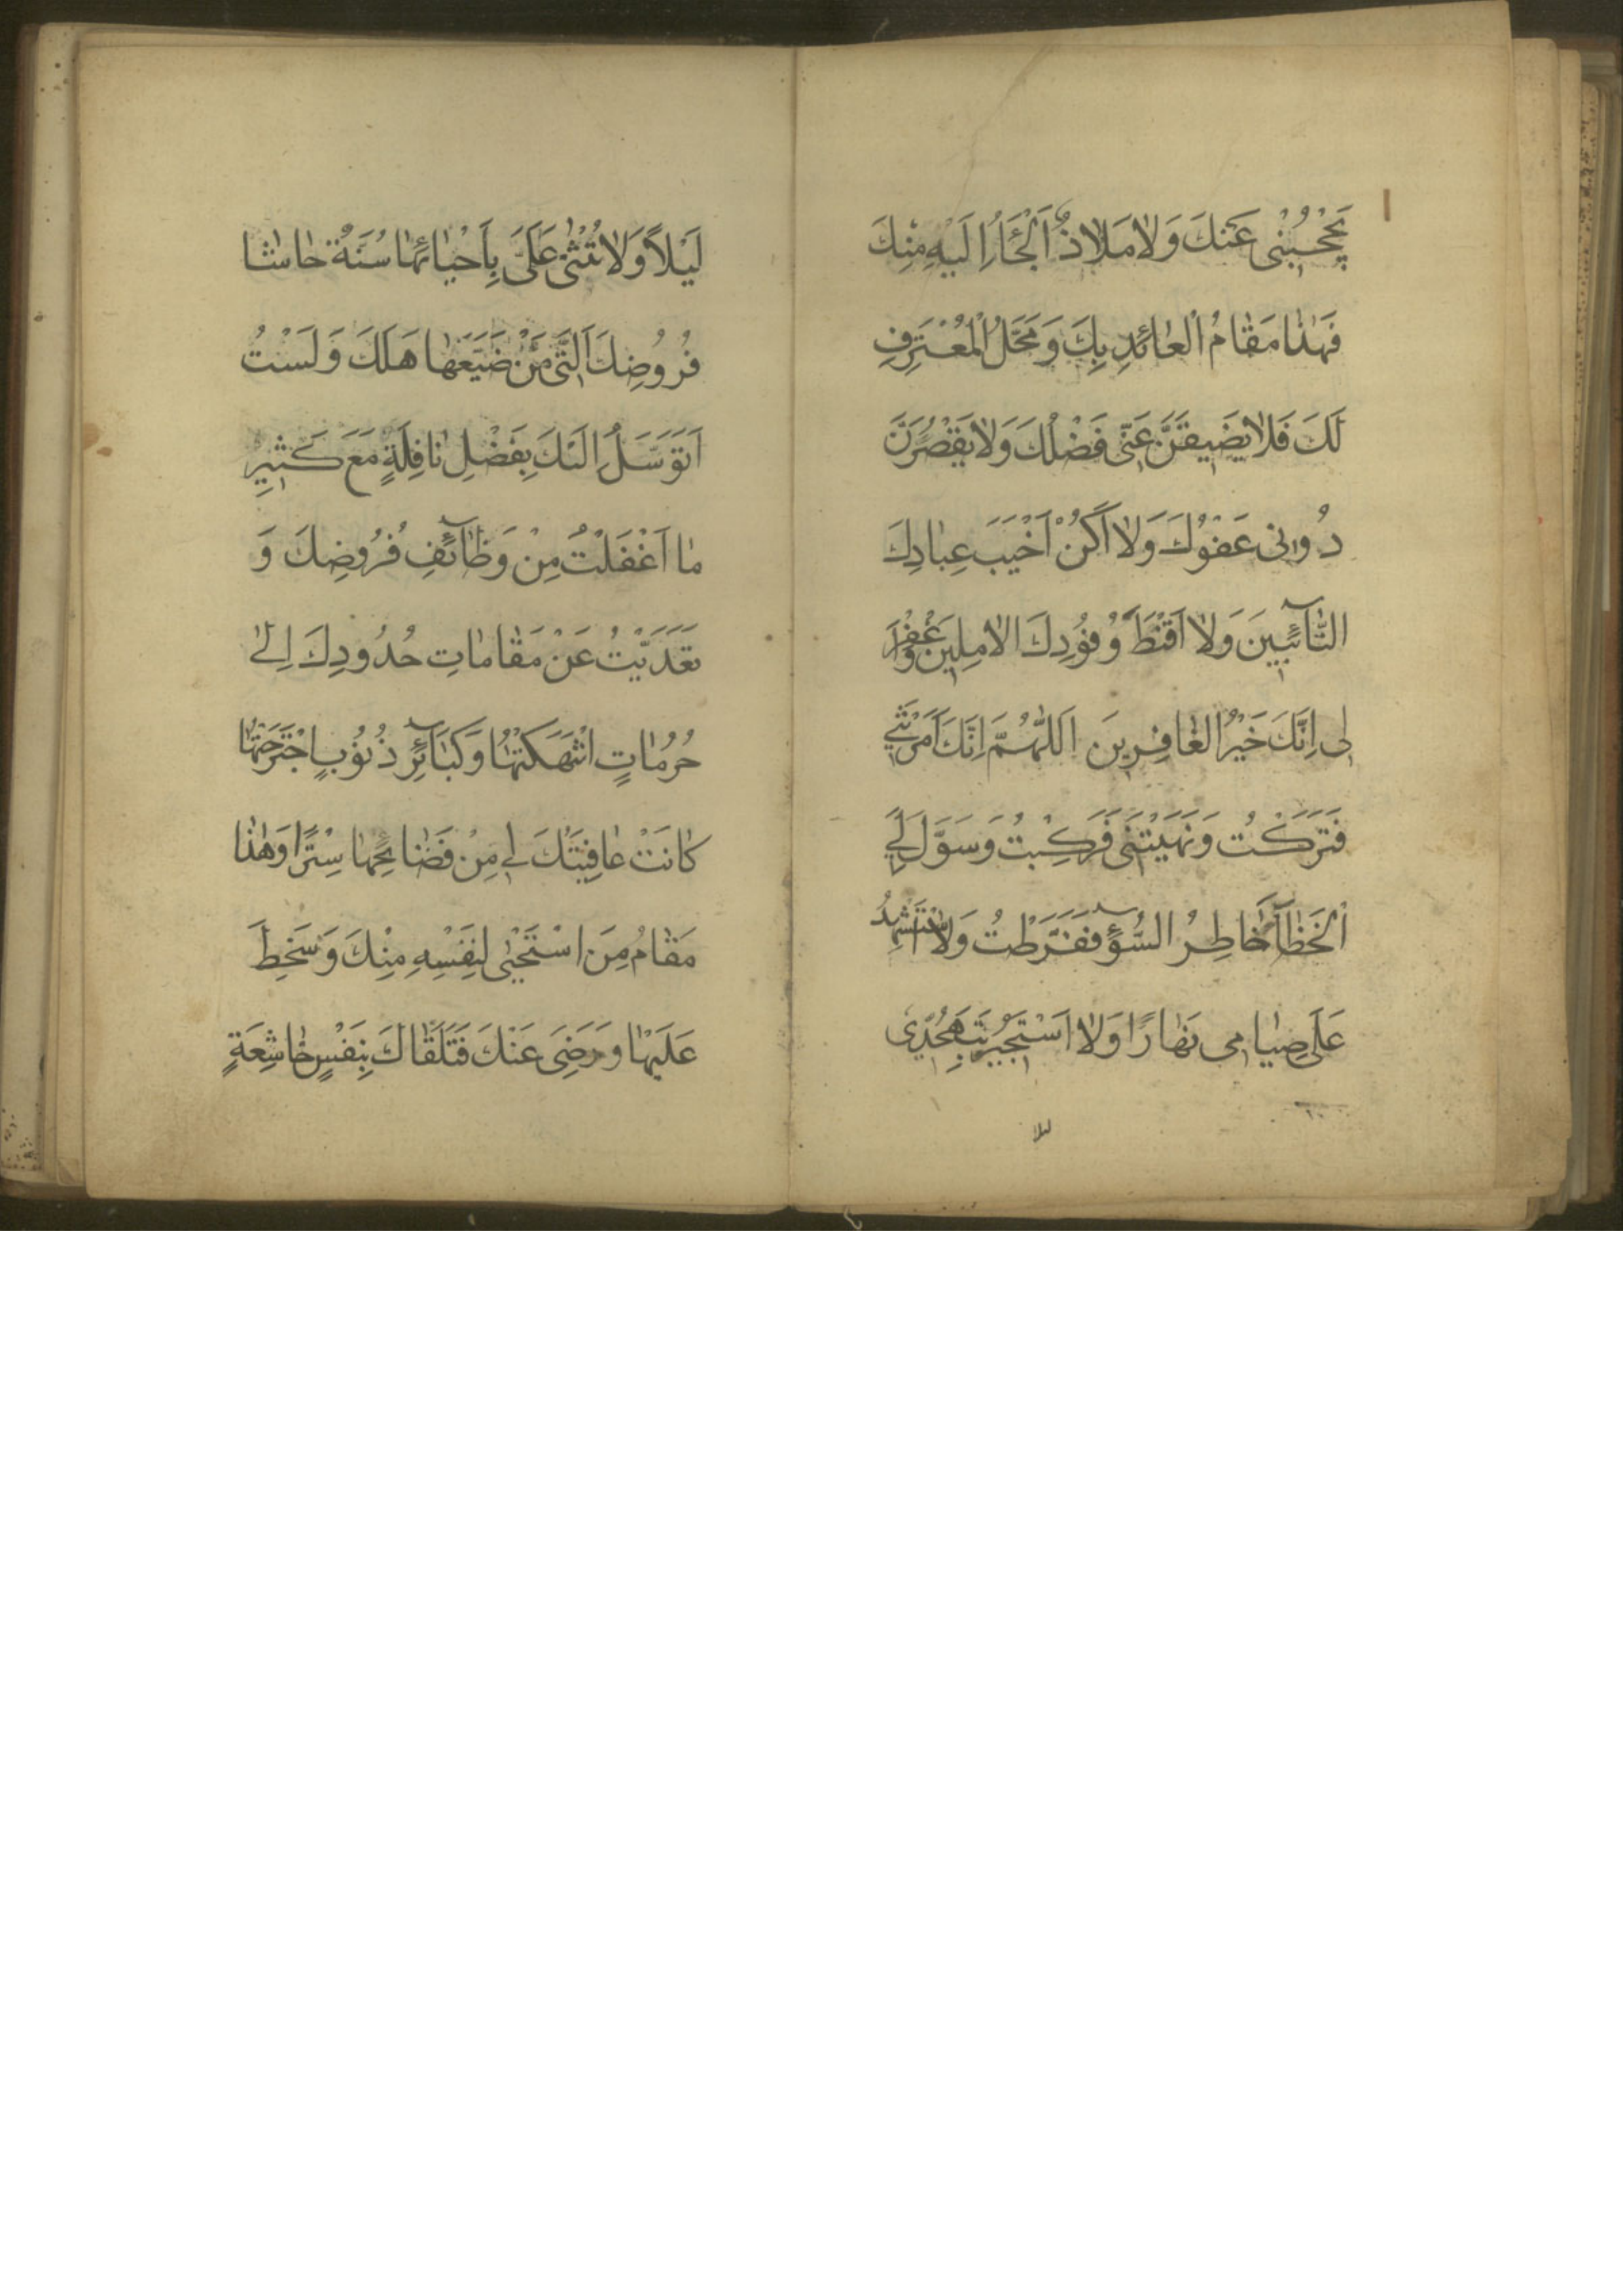 يَحْجُبُنِى عَنْكَ وَلَا مَلَاذٌ اَلْجَأُ اِلَيْهِ مِنْكَ
فَهٰذَا مَقَامُ الْعَائِذِ بِكَ وَمَحَلُّ الْمُعْتَرِفِ
لَكَ فَلَا يَضِيقَنَّ عَنِّى فَضْلُكَ وَلَا يَقْصُرَنَّ
دُونِى عَفْوُكَ وَلَا اَكُنْ اَخْيَبَ عِبَادِكَ
التَّآئِبِينَ وَلَا اَقْنَطَ وُفُودِكَ الْاٰمِلِينَ وَاغْفِرْ
لِى اِنَّكَ خَيْرُ الْغَافِرِينَ اَللّٰهُمَّ اِنَّكَ اَمَرْتَنِي
فَتَرَكْتُ وَنَهَيْتَنِى فَرَكِبْتُ وَسَوَّلَ لِي
الْخَطَآءَ خَاطِرُ السُّوٓءِ فَفَرَّطْتُ وَلَا اَسْتَشْهِدُ
عَلَى صِيَامِى نَهَارًا وَلَا اَسْتَجِيرُ بِتَهَجُّدِى
ليلا
لَيْلًا وَلَا تُثْنِى عَلَىَّ بِاِحْيَائِهَا سُنَّةٌ حَاشَا
فُرُوضِكَ الَّتِى مَنْ ضَيَّعَهَا هَلَكَ وَلَسْتُ
اَتَوَسَّلُ اِلَيْكَ بِفَضْلِ نَافِلَةٍ مَعَ كَثِيرِ
مَا اَغْفَلْتُ مِنْ وَظَآئِفِ فُرُوضِكَ وَ
تَعَدَّيْتُ عَنْ مَقَامَاتِ حُدُودِكَ اِلٰى
حُرُمَاتٍ انْتَهَكْتُهَا وَكَبَآئِرِ ذُنُوبٍ اجْتَرَحْتُهَا
كَانَتْ عَافِيَتُكَ لِي مِنْ فَضَائِحِهَا سِتْرًا وَهٰذَا
مَقَامُ مَنِ اسْتَحْيٰى لِنَفْسِهِ مِنْكَ وَسَخِطَ
عَلَيْهَا وَرَضِىَ عَنْكَ فَتَلَقَّاكَ بِنَفْسٍ خَاشِعَةٍ